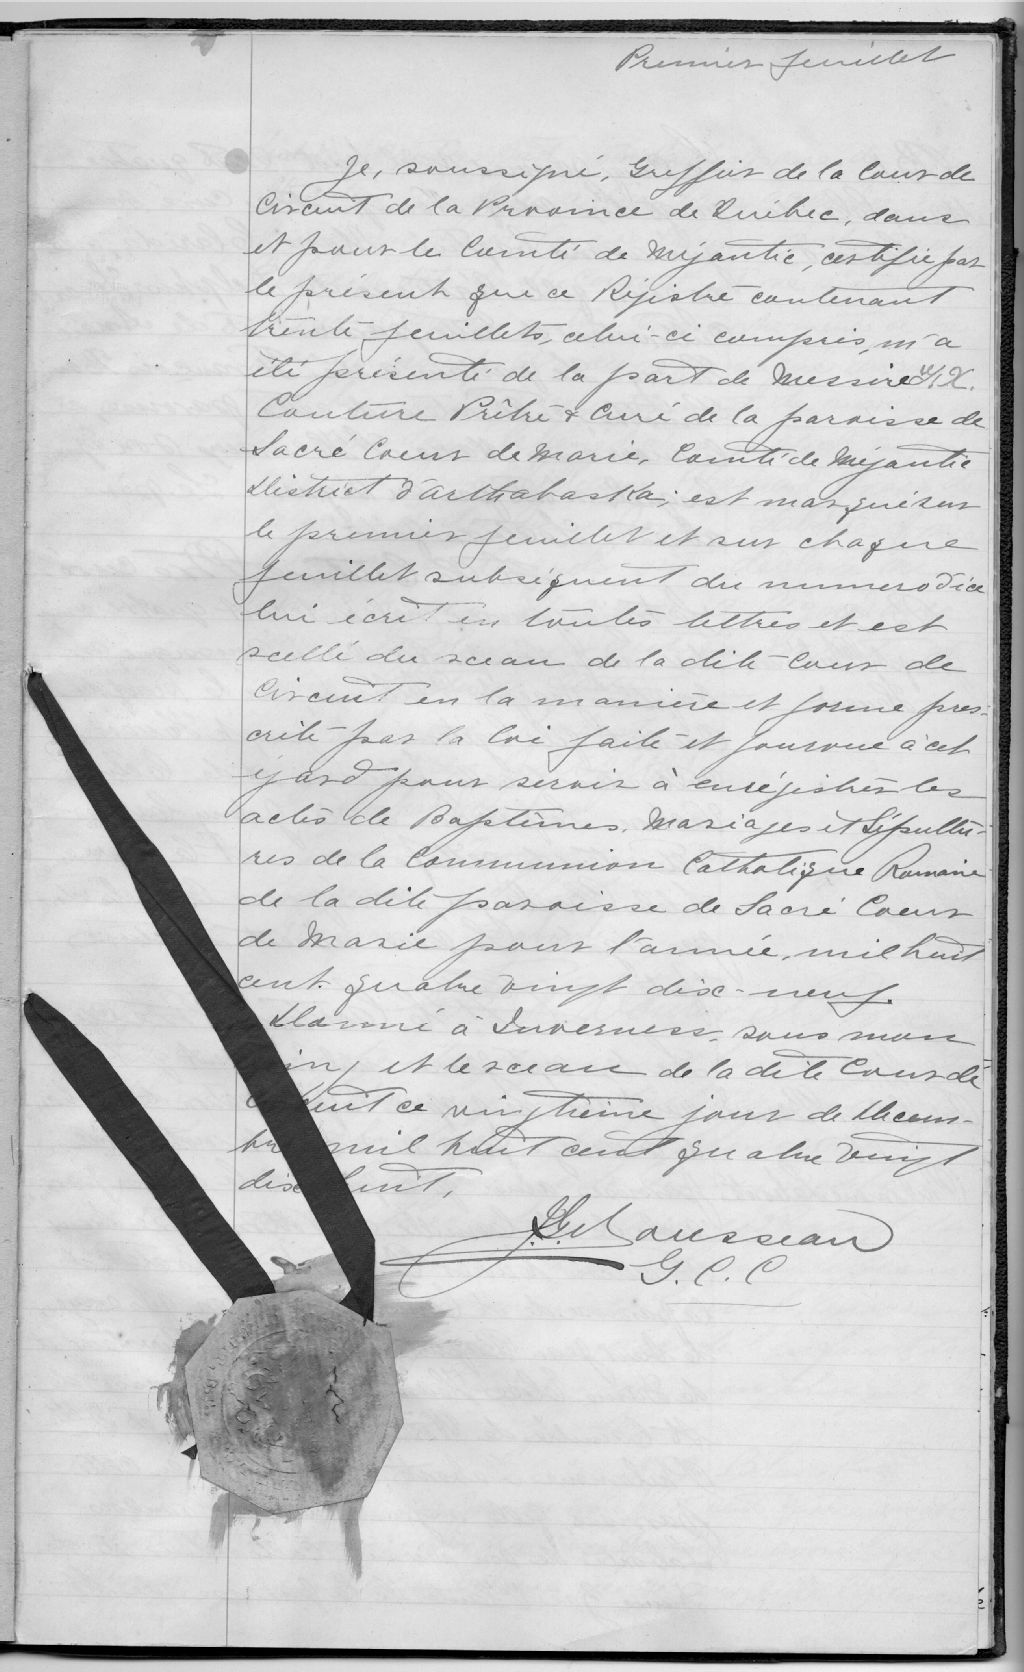 Premier feuillet
Je, soussigné, Greffier de la Cour de
Circuit de la Province de Québec, dans
et pour le Comté de Mégantic, certifie par
le présent que ce Régistre contenant
trente feuillets, celui-ci compris, m'a
été présenté de la part de Messire X.
Couture Prêtre & Curé de la paroisse de
Sacré Coeur de Marie, Comté de Mégantic
District d'Arthabaska; est marqué sur
le premier feuillet et sur chaque
feuillet subséquent du numero d'ice
lui écrit en toutes lettres et est
scellé du sceau de la dite Cour de
Circuit en la manière et forme pres-
crite par la loi faite et pourvue à cet
égard pour servir à enrégistrer les
actes de Baptêmes, Mariages et Sépultu-
res de la Communion Catholique Romaine
de la dite paroisse de Sacré Coeur
de Marie pour l'année, mil huit
cent quatre vingt dix-neuf.
Donné à Inverness, sous mon
et le sceau de la dite Cour de
Circuit ce vingtième jour de Décem-
bre mil huit cent quatre vingt
dix huit,
Rousseau
G. C. C